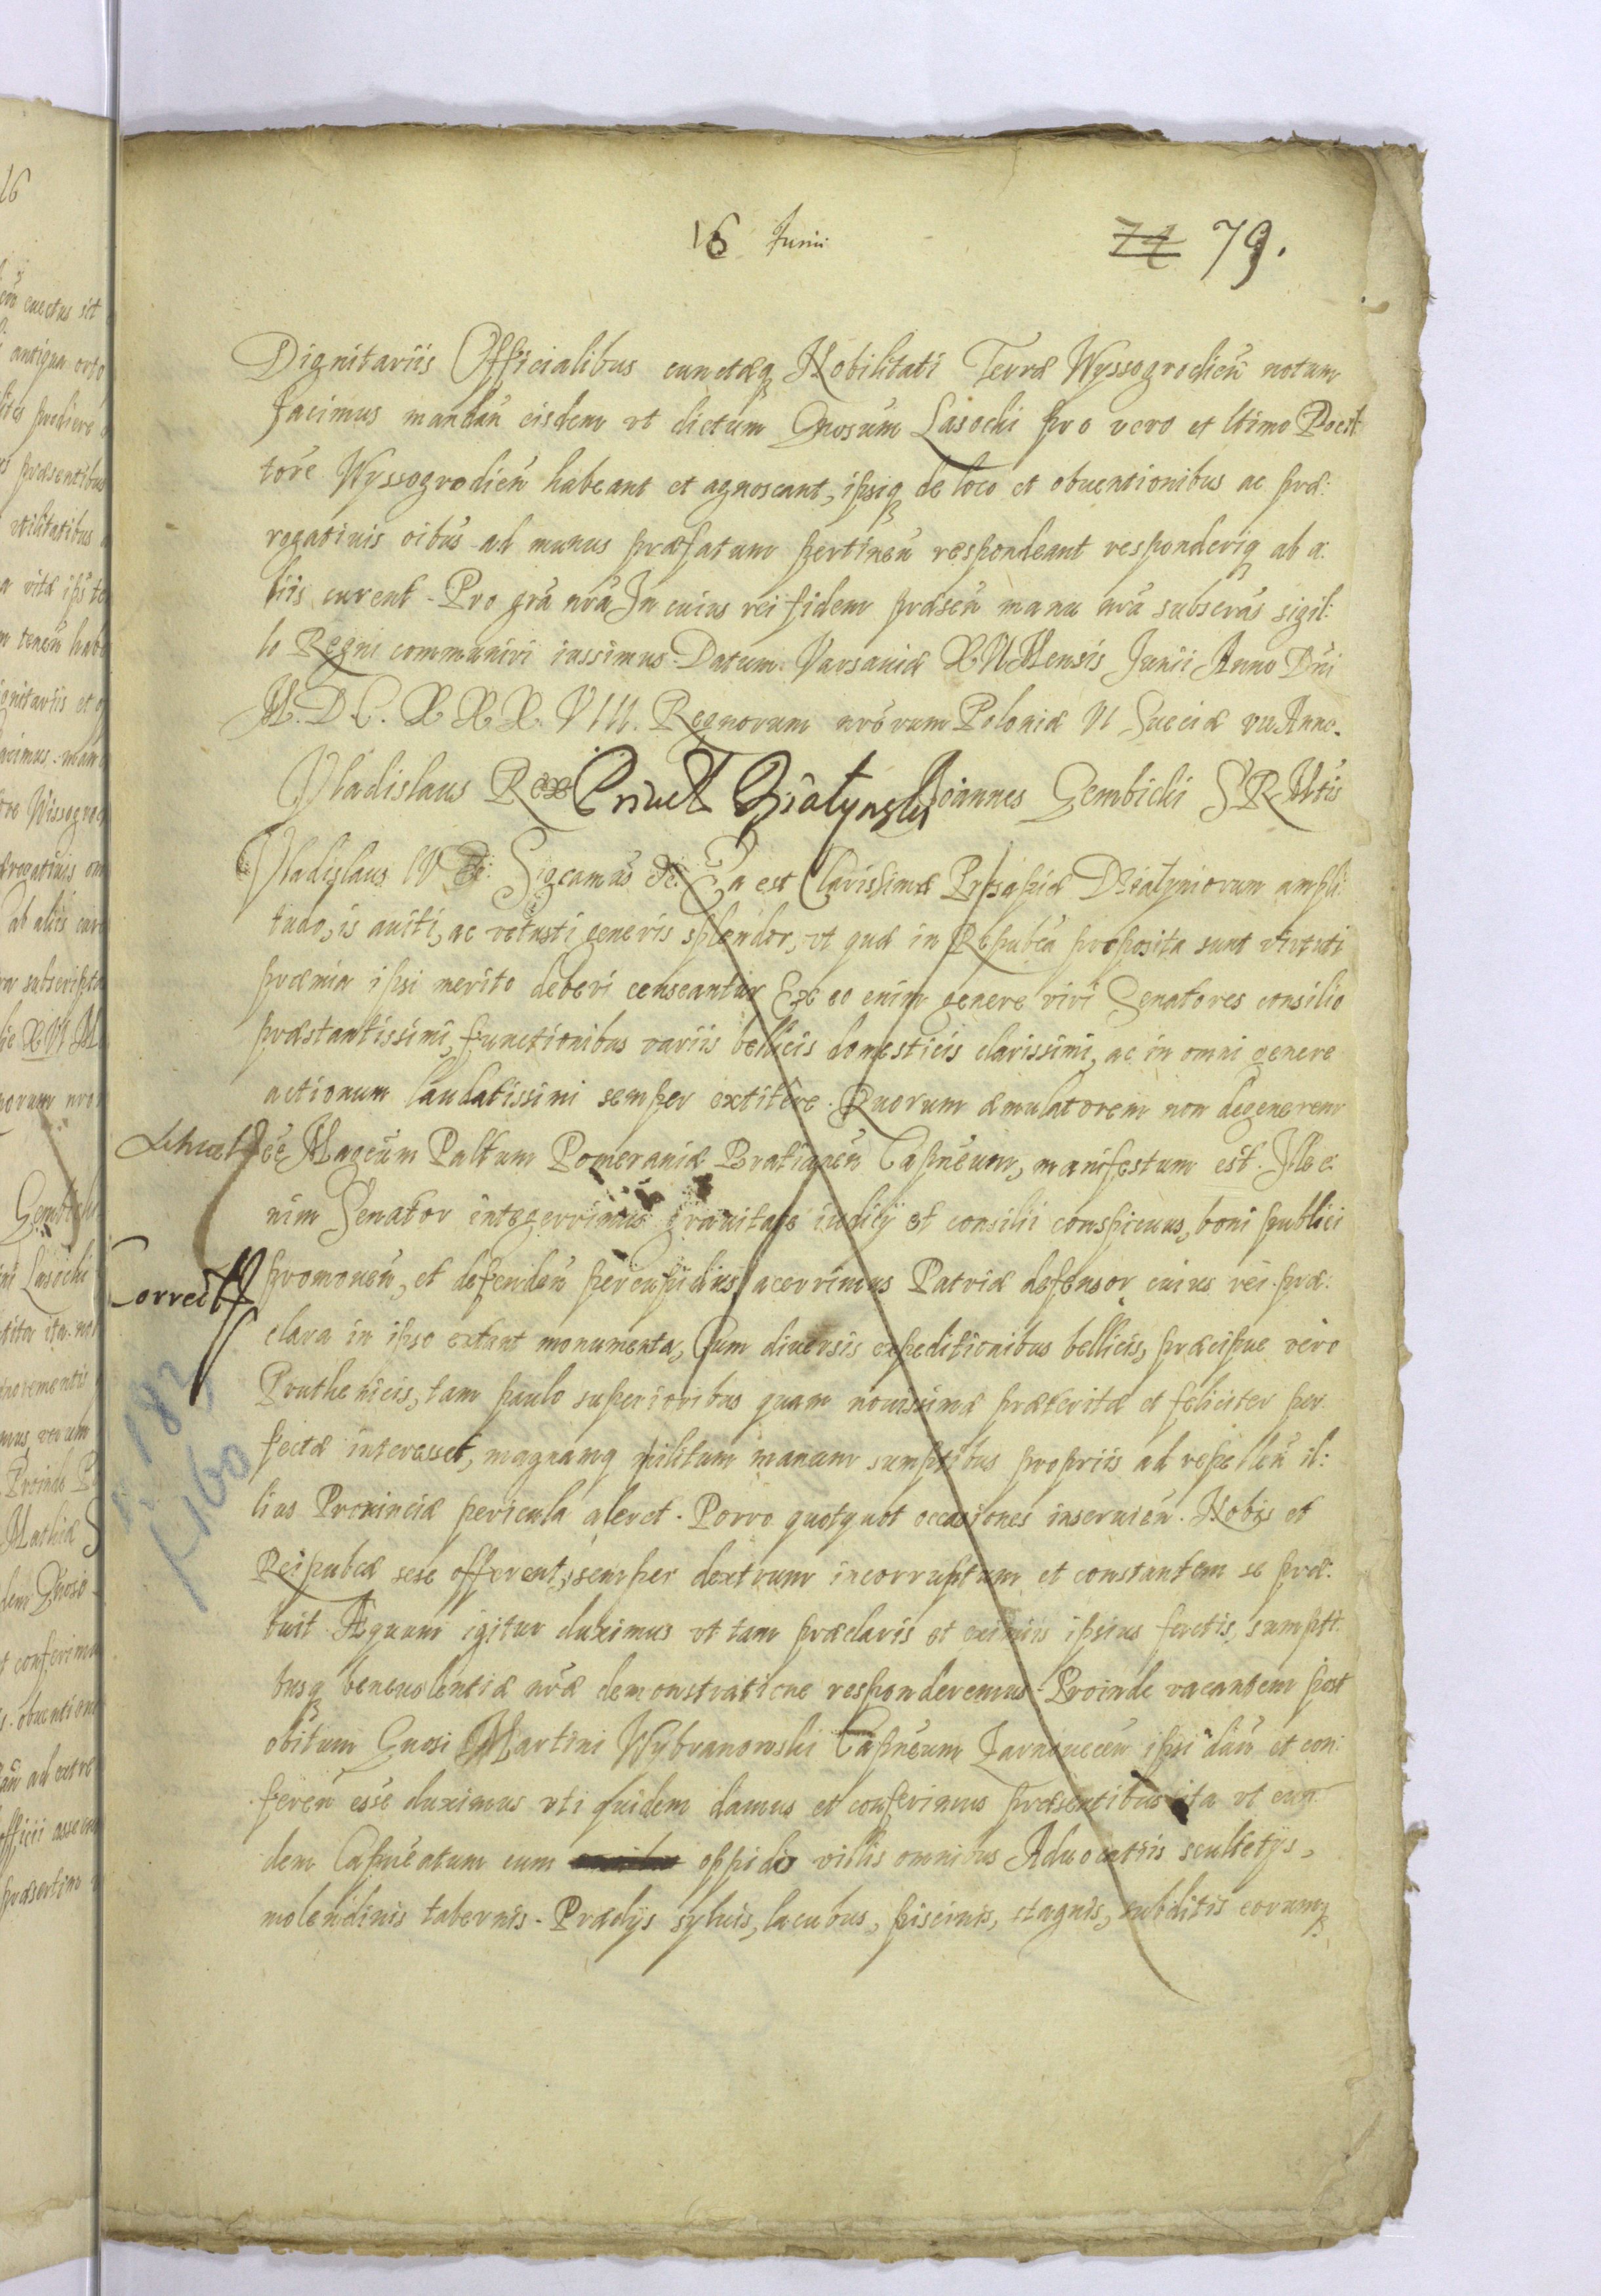 16 Junii
74 79.
Dignitariis Officialibus cunctæq Nobilitati Terræ Wyssogrodień notum
facimus mandań eisdem vt dictum Gnosum Lasocki pro vero et ltimo Pocil
tore Wyssogrodień habeant et agnoscant, ipsiq de loco et obuentionibus ac præ:
rogatiuis oibus ad munus præfatum pertineń respondeant responderiq ab a:
liis curent. Pro gra nra In cuius rei fidem præseń manu nra subscras sigil:
lo Regni communiri iussimus. Datum Varsauiæ XVI Mensis Junii Anno Dni
M.D.C.XXX.VIII. Regnorum nrorum Poloniæ VI Sueciæ vii Anno.
Vladislaus Rex Joannes Gembicki S R Mtis
Vladislaus IV Sigcamus &c. Ea est Clarissimæ Prosapiæ Dzialyniorum ampli:
tudo, is auiti, ac vetusti generis splendor, vt quæ in Repubca proposita sunt virtuti
præmia ipsi merito deberi censeantur Ex eo enim genere viri Senatores consilio
præstantissimi, functionibus variis bellicis domesticis clarissimi, ac in omni genere
actionum laudatissimi semper extitere. Quorum æmulatorem non degenerem
ee Magcum Paltum Pomeraniæ Bratianeń Capneum, manifestum est. Ille e:
nim Senator integerrimus grauitate iudicij et consilii conspicuus, boni publici
Correct
promoueń, et defendeń percupidus, acerrimus Patriæ defensor cuius rei præ:
clara in ipso extant monumenta, Cum diuersis expeditionibus bellicis, præcipue vero
Pruthenicis, tam paulo superioribus quam nouissimæ præteritæ et feliciter per
fectæ interesset, magnamq militum manum sumptibus propriis ad repelleń il:
lius Prouinciæ pericula aleret. Porro quotquot occasiones inseruień Nobis et
Reipubcæ sese offerent, semper dextrum incorruptum et constantem se præ:
buit Æquum igitur duximus vt tam præclaris et eximiis ipsius factis, sumpti
busq beneuolentiæ nræ demonstratione responderemus. Proinde vacantem post
obitum Gnosi Martini Wybranowski Capneum ipsi dań et con:
fereń esse duximus vti quidem damus et conferimus præsentibus ita vt eun:
dem Capneatum cum oppido villis omnibus Aduocatiis scultetijs,
molendinis tabernis. Prædijs syluis, lacubus, piscinis, stagnis, subditis eorumq
182
f 160